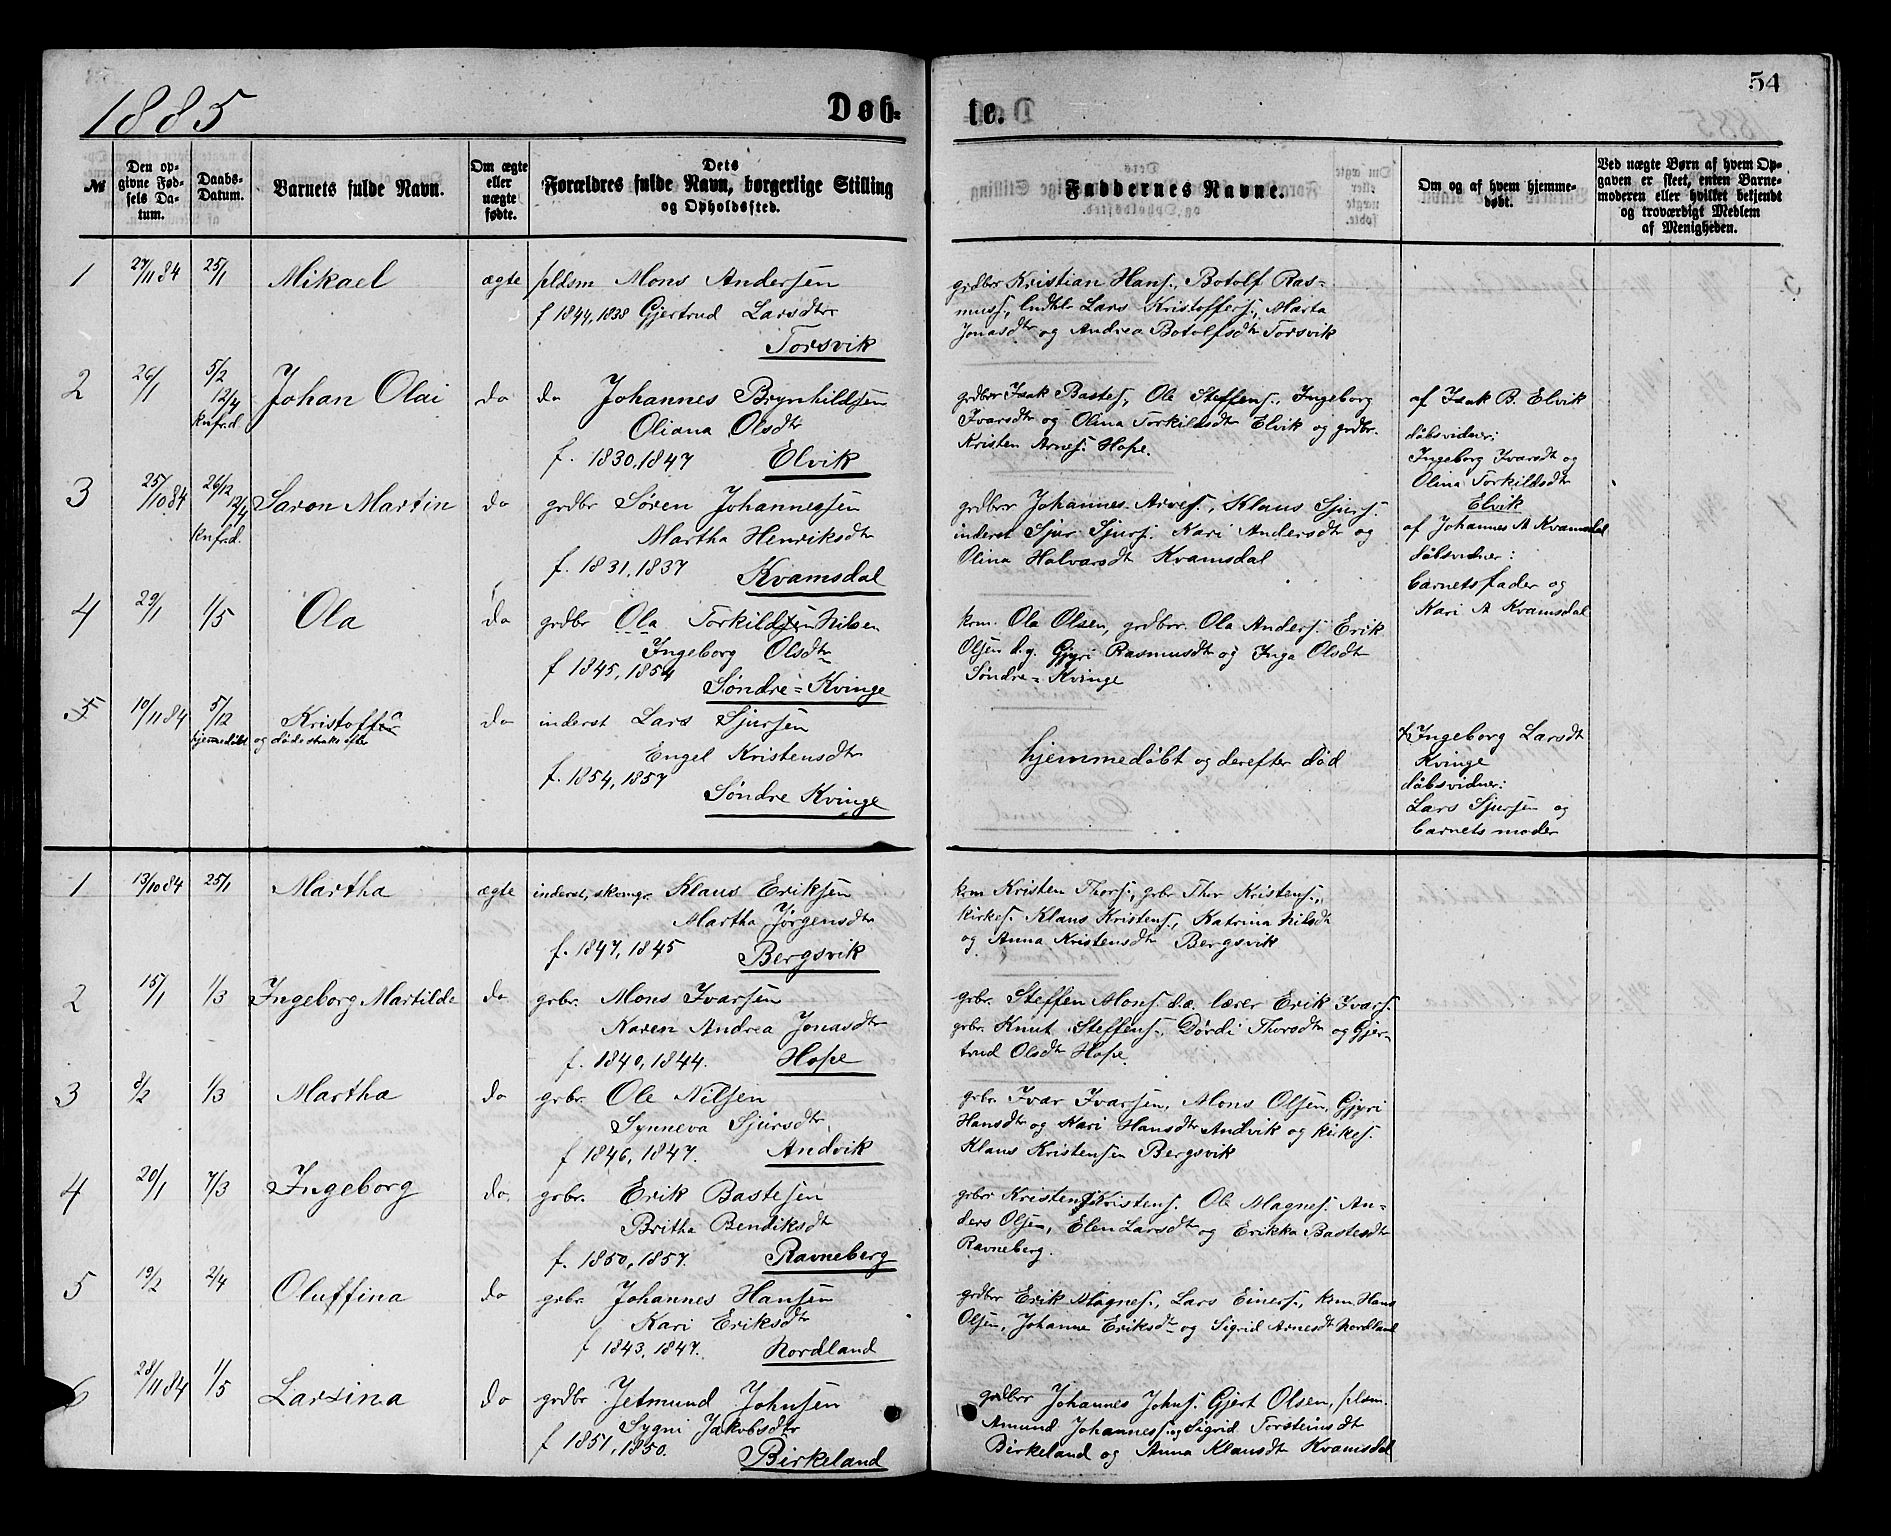 1885
Døb-
te.
54
№
Den op-
givne Fød-
sels Da-
tum.
Daabs-
Datum.
Barnets fulde Navn.
Om ægte
eller
uægte
fødte.
Dets
Forældres fulde Navn, borgerlige Stilling
og Opholdssted.
Faddernes Navne.
Om og af hvem hjemme-
døbt.
Ved uægte Børn af hvem Op-
gaven er skeet, enten Barne-
moderen eller hvilket bekjendt
og troværdigt Medlem
af Menigheden.
1 27/11 84 25/1 Mikael ægte pldsm Mons Andersen
f 1844, 1838 Gjertrud Larsdtr
Torsvik
grdbr Kristian Hans., Botolf Ras-
muss, Lars Kristoffers., Marta
Jonasdtr og Andrea Botolfsdtr Torsvik
2 26/1 5/2 12/4 knfrd. Johan Olai do do Johannes Brynhildsen
Oliana Olsdtr
f. 1830, 1847 Elvik
grdbr Isak Bastes., Ole Steffens., Ingeborg
Ivarsdtr og Olina Torkildsdtr Elvik og grdbr.
Kristen Arnes. Hope.
af Isak B. Elvik
døbsvidner:
Ingeborg Ivarsdt og
Olina Torkildsdt
Elvik
3 25/10 84 26/12 2/4 knfrd. Saron Martin do grdbr Søren Johannesen
Martha Henriksdtr
f. 1831, 1837 Kvamsdal
grdbrr Johannes Arves., Klaus Sjurs.
inderst Sjur Sjurs. Kari Andersdtr og
Olina Halvarsdtr Kvamsdal
af Johannes A Kvamsdal
døbsvidner:
barnetsfader og
Kari A Kvamsdal
4 29/1 1/5 Ola do grdbr Ola Torkildsen Nilsen
Ingeborg Olsdtr
f 1845, 1854
Søndre-Kvinge
krm. Ola Olsen, grdbrr. Ola Anders. Erik
Olsen d.y. Gjyri Rasmusdtr og Inga Olsdtr
Søndre-Kvinge
5 10/11 84 5/12 Kristoffa do inderst Lars Sjursen
hjemmedøbt og døde straks efter
Engel Kristensdtr
f. 1854, 1857
Søndre Kvinge
hjemmedøbt og derefter død
af Ingeborg Larsdt
Kvinge
døbsvidner:
Lars Sjursen og
barnets moder
1 13/10 84 25/1 Martha ægte inderst, skomgr. Klaus Eriksen
Martha Jørgensdtr
f. 1847, 1845 Bergsvik
krm Kristen Thors., grbr Thor Kristens.,
kirkes. Klaus Kristens., Katrina Nilsdt
og Anna Kristensdtr Bergsvik
2 15/1 1/3 Ingeborg Martilde do grbr. Mons Ivarsen
Karen Andrea Jonasdtr
f. 1840, 1844. Hope
grbr. Steffen Mons. d.æ. lærer Erik Ivars.
grbr. Knut Steffens., Dørdi Thorsdtr og Gjer-
trud Olsdtr Hope.
3 8/2 1/3 Martha do grbr. Ole Nilsen
Synneva Sjursdtr,
f 1846, 1847. Andvik
grbr. Ivar Ivarsen, Mons Olsen, Gjyri
Hansdtr og Kari Hansdtr Andvik og kirkes.
Klaus Kristensen Bergsvik
4 20/1 7/3 Ingeborg do. grbr. Erik Bastesen
Britha Bendiksdtr
f. 1850, 1857. Ravneberg
grbrr Kristen Kristens. Ole Magnes. An-
ders Olsen, Elen Larsdtr og Erikka Bastesdtr
Ravneberg.
5 19/2 2/4 Oluffina do grbr. Johannes Hansen
Kari Eriksdtr
f 1843, 1847. Nordland
grdbr Erik Magnes., Lars Einers., krm. Hans
Olsen, Johanne Eriksdtr og Sigrid Arnesdt Nordland
6 28/11 84 1/5 Larsina do grdbr Jetmund Johnsen
Sygni Jakobsdtr
f 1851, 1850.
Birkeland
grdbrr Johannes Johns. Gjert Olsen, plsm.
Amund Johanness. og Sigrid Torsteinsdt
Birkeland og Anna Klausdtr Kvamsdal